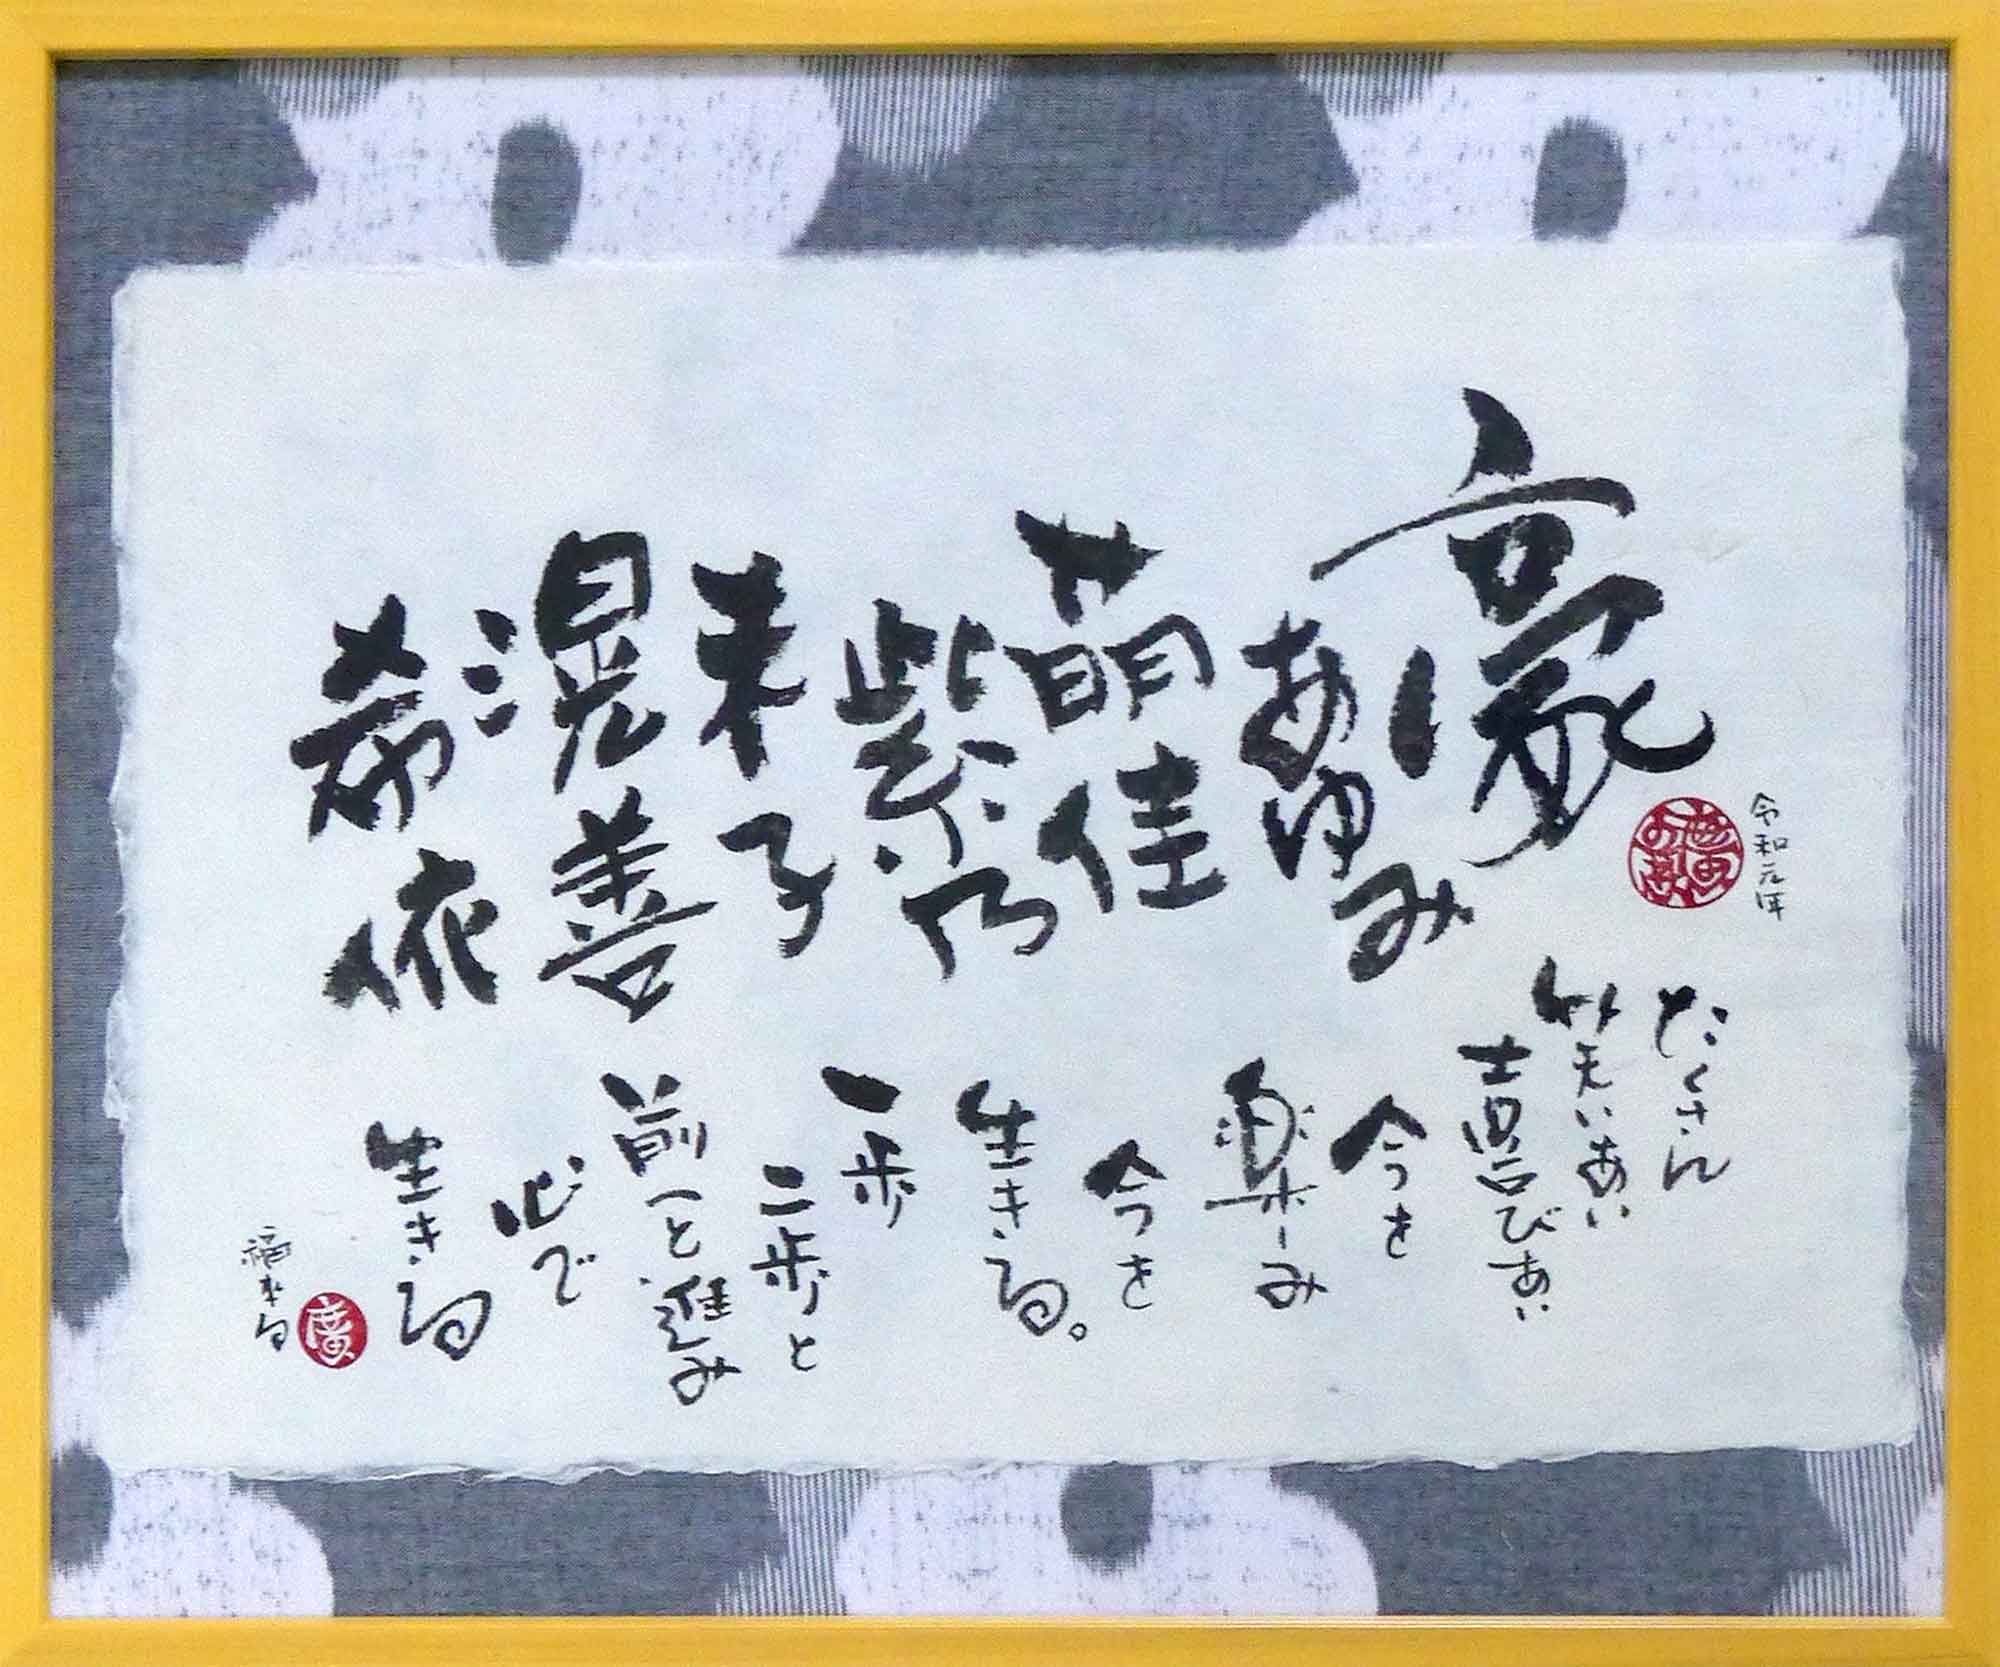 令和元年
豪
あゆみ
萌佳
紫乃
来子
滉善
希依
たくさん
笑いあい
喜びあい
今を
楽しみ
今を
生きる。
一歩
二歩と
前へと進み
心で
生きる
廣